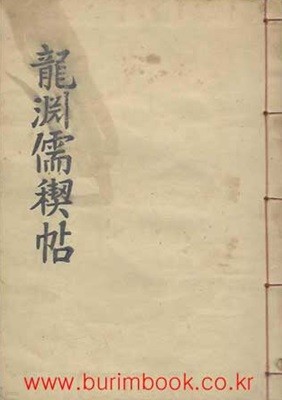 龍淵儒稧帖
www.burimbook.co.kr